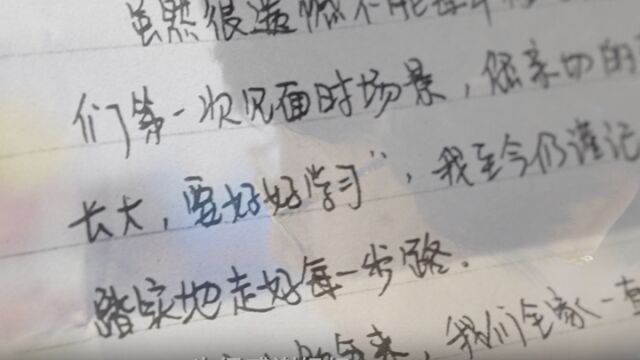 虽然很遗憾不能
们第一次见面时场景，您亲切的
长大，要好好学习”，我至今仍谨记
踏实地走好每一步路.
来，我们全家一直